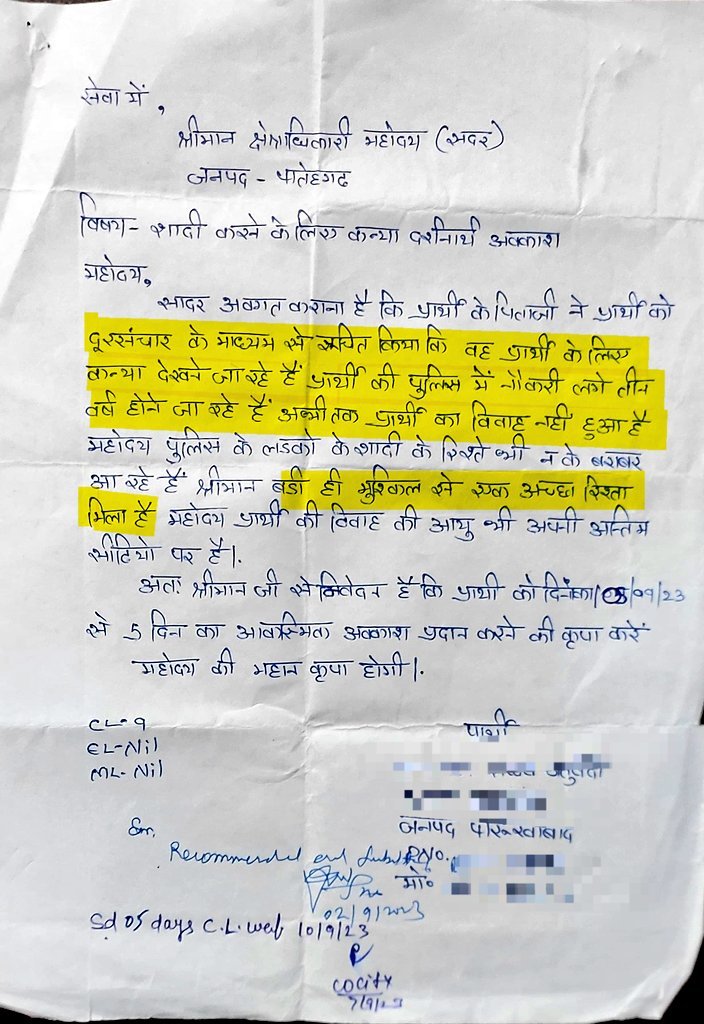 सेवा में,
श्रीमान क्षेत्राधिकारी महोदय (सदर)
जनपद - फतेहगढ
विषय- शादी करने के लिए कन्या दर्शनार्थ अवकाश
महोदय,
सादर अवगत कराना है कि प्रार्थी के पिताजी ने प्रार्थी को
दूरसंचार के माध्यम से सूचित किया कि वह प्रार्थी के लिए
कन्या देखने जा रहे हैं प्रार्थी की पुलिस में नौकरी लगे तीन
वर्ष होने जा रहे हैं अभी तक प्रार्थी का विवाह नहीं हुआ है
महोदय पुलिस के लडको के शादी के रिश्ते भी न के बराबर
आ रहे हैं श्रीमान बडी ही मुश्किल से एक अच्छा रिश्ता
मिला है महोदय प्रार्थी की विवाह की आयु भी अपनी अन्तिम
सीढियो पर है।.
अतः श्रीमान जी से निवेदन है कि प्रार्थी को दिनांक /09/23
से 5 दिन का आकस्मिक अवकाश प्रदान करने की कृपा करें
महोदय की महान कृपा होगी।.
CL-9
EL-Nil
ML-Nil
प्रार्थी
जनपद फर्रुखाबाद
PNO.
मो०
Recommended and
02/9/2023
Sd 05 days C.L. wef 10/9/23
CO City